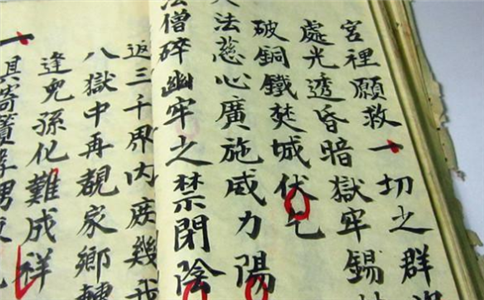 宮裡願救一切之群
處光透昏暗獄牢錫
破銅鐵焚城伏乞
大法慈心廣施威力陽
法僧碎幽牢之禁閉陰
返三千界内庶幾
八獄中再覩家鄉轉
逢免孫化難成祥
一具寄寶